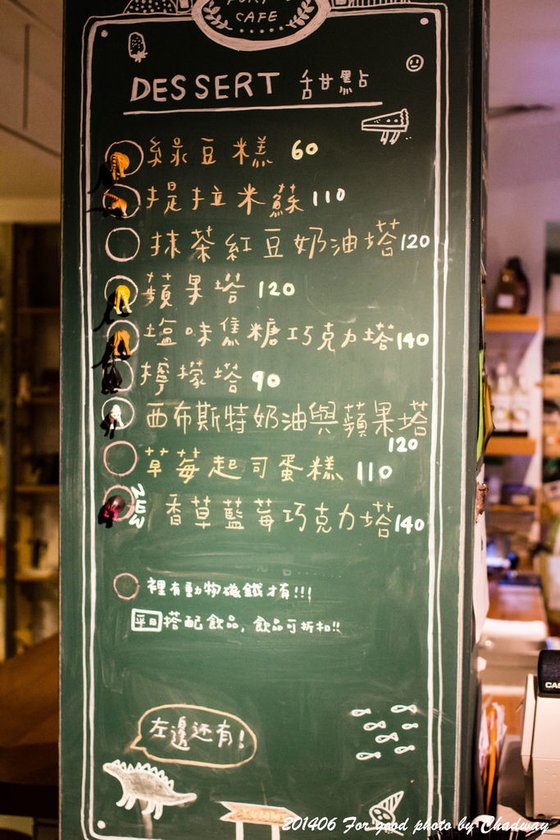 CAFE
DESSERT 甜點
綠豆糕 60
提拉米蘇 110
抹茶紅豆奶油塔 120
蘋果塔 120
塩味焦糖巧克力塔 140
檸檬塔 90
西布斯特奶油與蘋果塔 120
草莓起司蛋糕 110
香草藍莓巧克力塔 140
裡有動物磁鐵才有!!!
平日搭配飲品,飲品可折扣!!
左邊还有!
201406 For good photo by Chadway